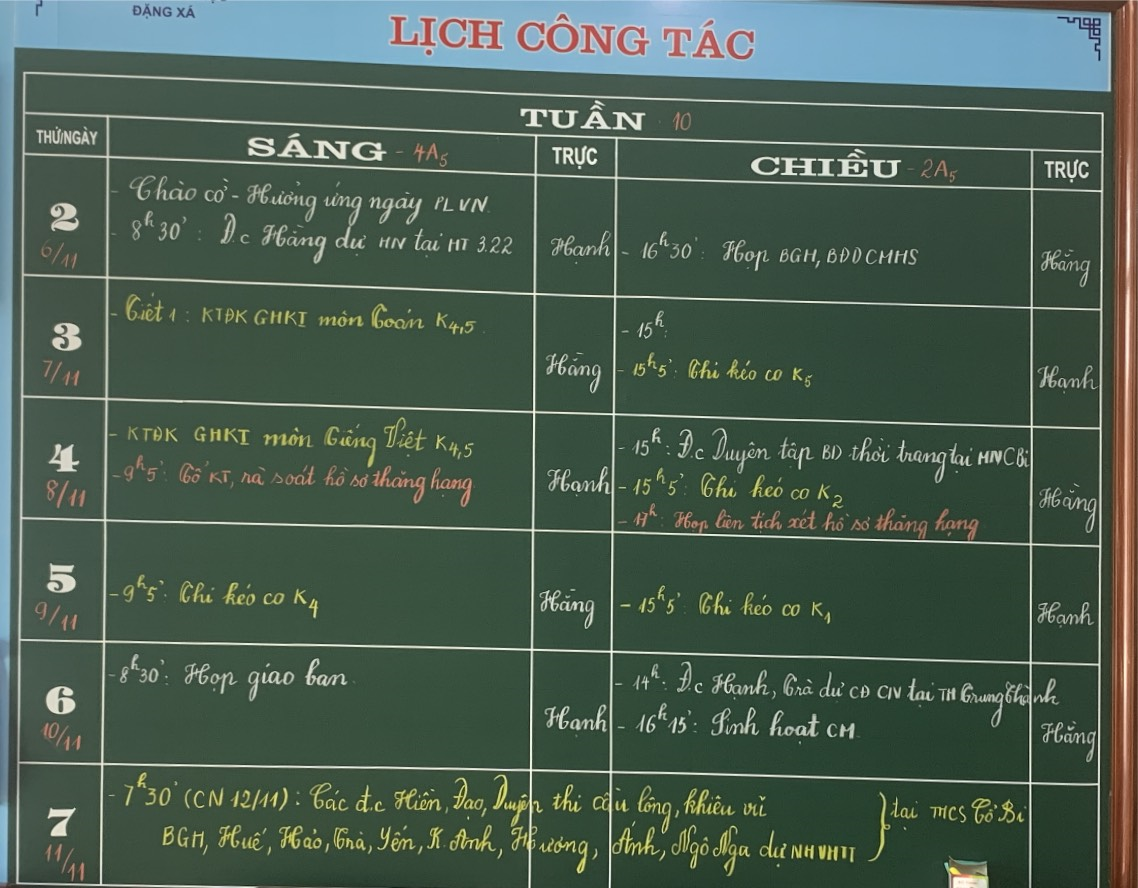 ĐẶNG XÁ
LỊCH CÔNG TÁC
TUẦN 10
THỨ/NGÀY
SÁNG - 4A5
TRỰC
CHIỀU - 2A5
TRỰC
2
6/11
- Chào cờ - Hưởng ứng ngày PLVN
- 8h30': Đ.c Hằng dự HN tại HT 3.22
Hạnh
- 16h30': Họp BGH, BĐDCMHS
Hằng
3
7/11
- Tiết 1: KTĐK GHKI môn Toán K4,5
Hằng
- 15h:
- 15h5': Thi kéo co K5
Hạnh
4
8/11
- KTĐK GHKI môn Tiếng Việt K4,5
- 9h5': Tổ KT, rà soát hồ sơ thăng hạng
Hạnh
- 15h: Đ.c Duyên tập BD thời trang tại MNC Bi
- 15h5': Thi kéo co K2
- 17h: Họp liên tịch xét hồ sơ thăng hạng
Hằng
5
9/11
- 9h5': Thi kéo co K4
Hằng
- 15h5': Thi kéo co K1
Hạnh
6
10/11
- 8h30': Họp giao ban
Hạnh
- 14h: Đ.c Hạnh, Trà dự CĐ CN tại TH Trung Thành
- 16h15': Sinh hoạt CM
Hằng
7
11/11
- 7h30' (CN 12/11): Các đ.c Hiền, Đạo, Duyên thi cầu lông, khiêu vũ
BGH, Huế, Hảo, Trà, Yến, K. Anh, Hương, Ánh, Ngô Nga dự NHVHTT
} tại THCS Cổ Bi